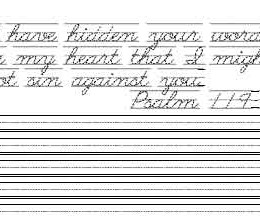 have hidden your word
my heart that I migh
ot sin against you
Psalm 119: